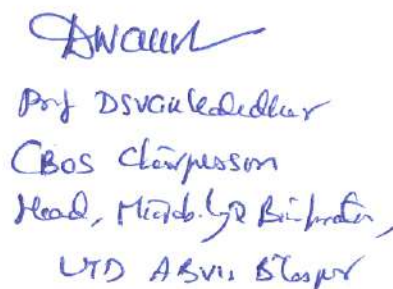 Prof DSVGK Kaladhar
CBOS Chairperson
Head, Microb. & Bioinformatics,
UTD ABVV, Bilaspur